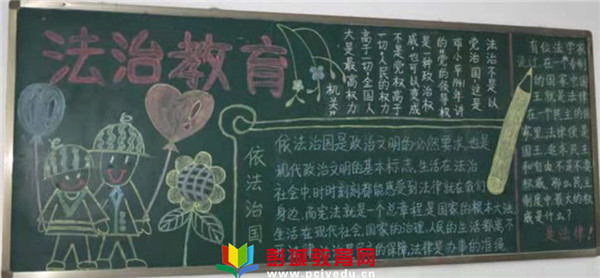 法治教育
法治不是以
党治国,这是
的"党的领导权
是一种政治权
威,也可以变成
不是党权高于
一切人民的权力
高于一切,全国人
大是最高权力
机关"
依法治国
依法治国是政治文明的必然要求,也是
现代政治文明的基本标志,生活在法治
社会中时时刻刻都能感受到法律就在我们
身边,而宪法就是一个总章程是国家的根本大法
生活在现代社会,国家的治理,人民的生活都离不
的保障,法律是办事的准绳
有位法学家
说过,在一个专制
的国家里国
王就是法律
在一个民主的
国家里,法律便是
国王。
和自由不是不要
权威,那么民主
制度中最大的权
威是什么?
是法律!
彭城教育网
www.pcjyedu.cn